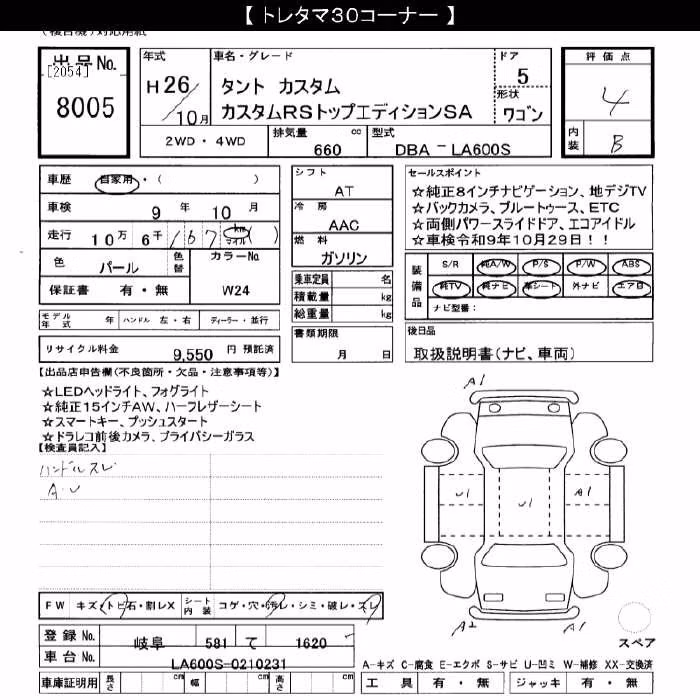 【 トレタマ30コーナー 】
(複合機)対応用紙
出品No.
[2054]
8005
年式
H 26/10月
車名・グレード
タント カスタム
カスタムRSトップエディションSA
ドア
5
形状
ワゴン
2WD ・ 4WD
排気量
660 cc
型式
DBA － LA600S
評価点
4
内装
B
車歴 自家用・( )
車検 9 年 10 月
走行 10万 6千 167 km マイル ( )
色 パール 色替
カラーNo.
W24
保証書 有・無
モデル年式 年 ハンドル 左・右 ディーラー・並行
リサイクル料金 9,550 円 預託済
シフト
AT
冷房
AAC
燃料
ガソリン
乗車定員 名
積載量 kg
総重量 kg
書類期限
月 日
セールスポイント
☆純正8インチナビゲーション、地デジTV
☆バックカメラ、ブルートゥース、ETC
☆両側パワースライドドア、エコアイドル
☆車検令和9年10月29日！！
装備品
S/R 純A/W P/S P/W ABS
純TV 純ナビ 革シート 外ナビ エア日
ナビ型番：
後日品
取扱説明書(ナビ、車両)
【出品店申告欄(不良箇所・欠品・注意事項等)】
☆LEDヘッドライト、フォグライト
☆純正15インチAW、ハーフレザーシート
☆スマートキー、プッシュスタート
☆ドラレコ前後カメラ、プライバシーガラス
【検査員記入】
ハンドルスレ
A・U
A1
A1
U1
U1
A1
A2
A1
スペア
FW キズ・トビ石・割レX シート内装 コゲ・穴・汚レ・シミ・破レ・スレ
登録No. 岐阜 581 て 1620
車台No. LA600S-0210231
車庫証明用 長さ cm 幅 cm 高さ cm
A-キズ C-腐食 E-エクボ S-サビ U-凹ミ W-補修 XX-交換済
工具 有・無 ジャッキ 有・無